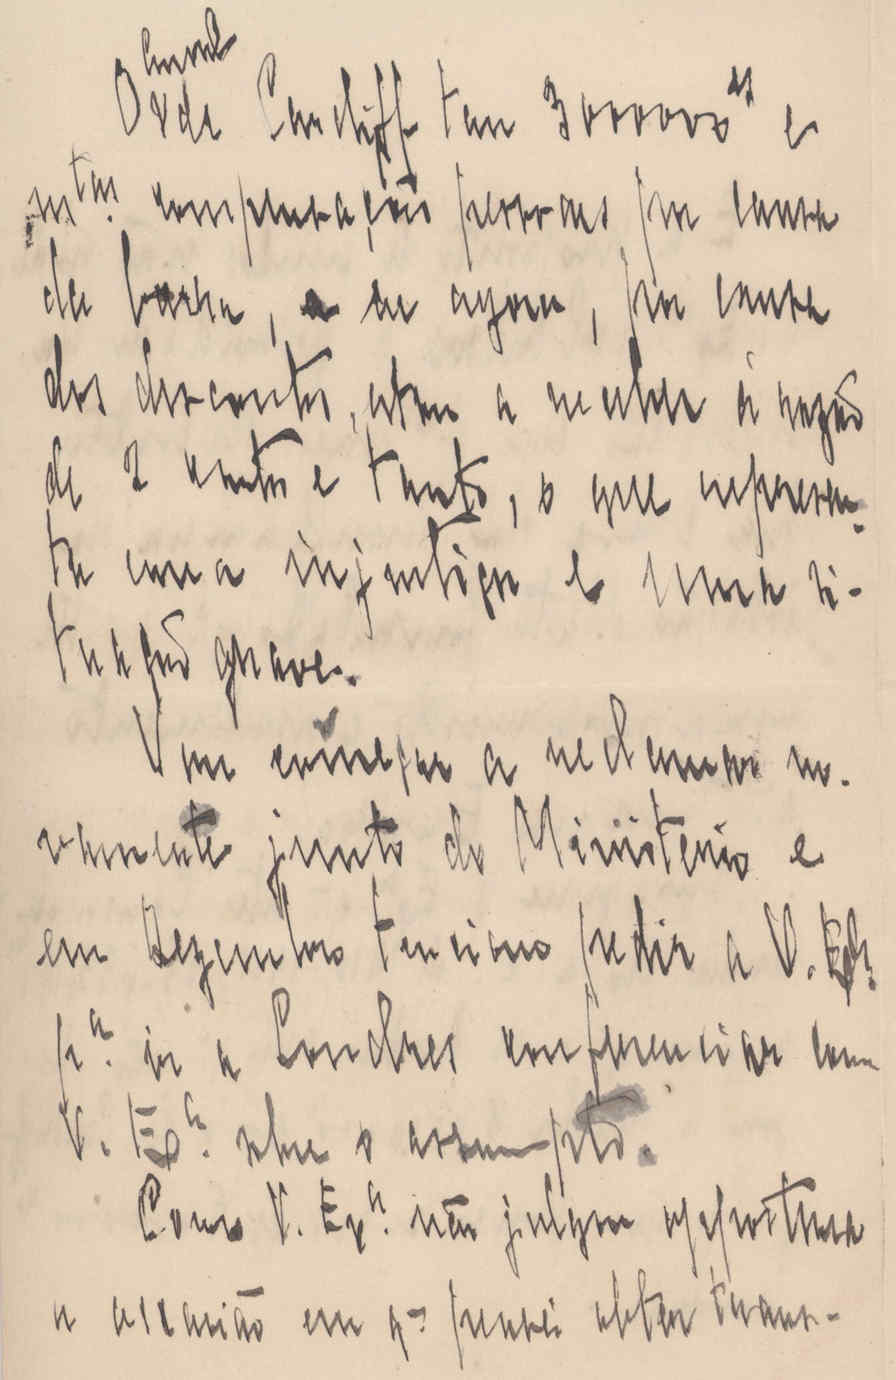 consul
O de Cardiff tem 300000 rs e
mtas. compensações pessoaes por causa
da barra, e eu agora, por causa
dos descontos, estou a receber á razão
de 2 contos e tanto, o que represen-
ta uma injustiça e uma si-
tuação grave.
Vou começar a reclamar no-
vamente junto do Ministerio e
em Dezembro tenciono pedir a V. Exa.
pa. ir a Londres conferenciar com
V. Exa. sobre o assumpto.
Como V. Exa. não julgou opportuna
a occasião em q. pensei obter trans-